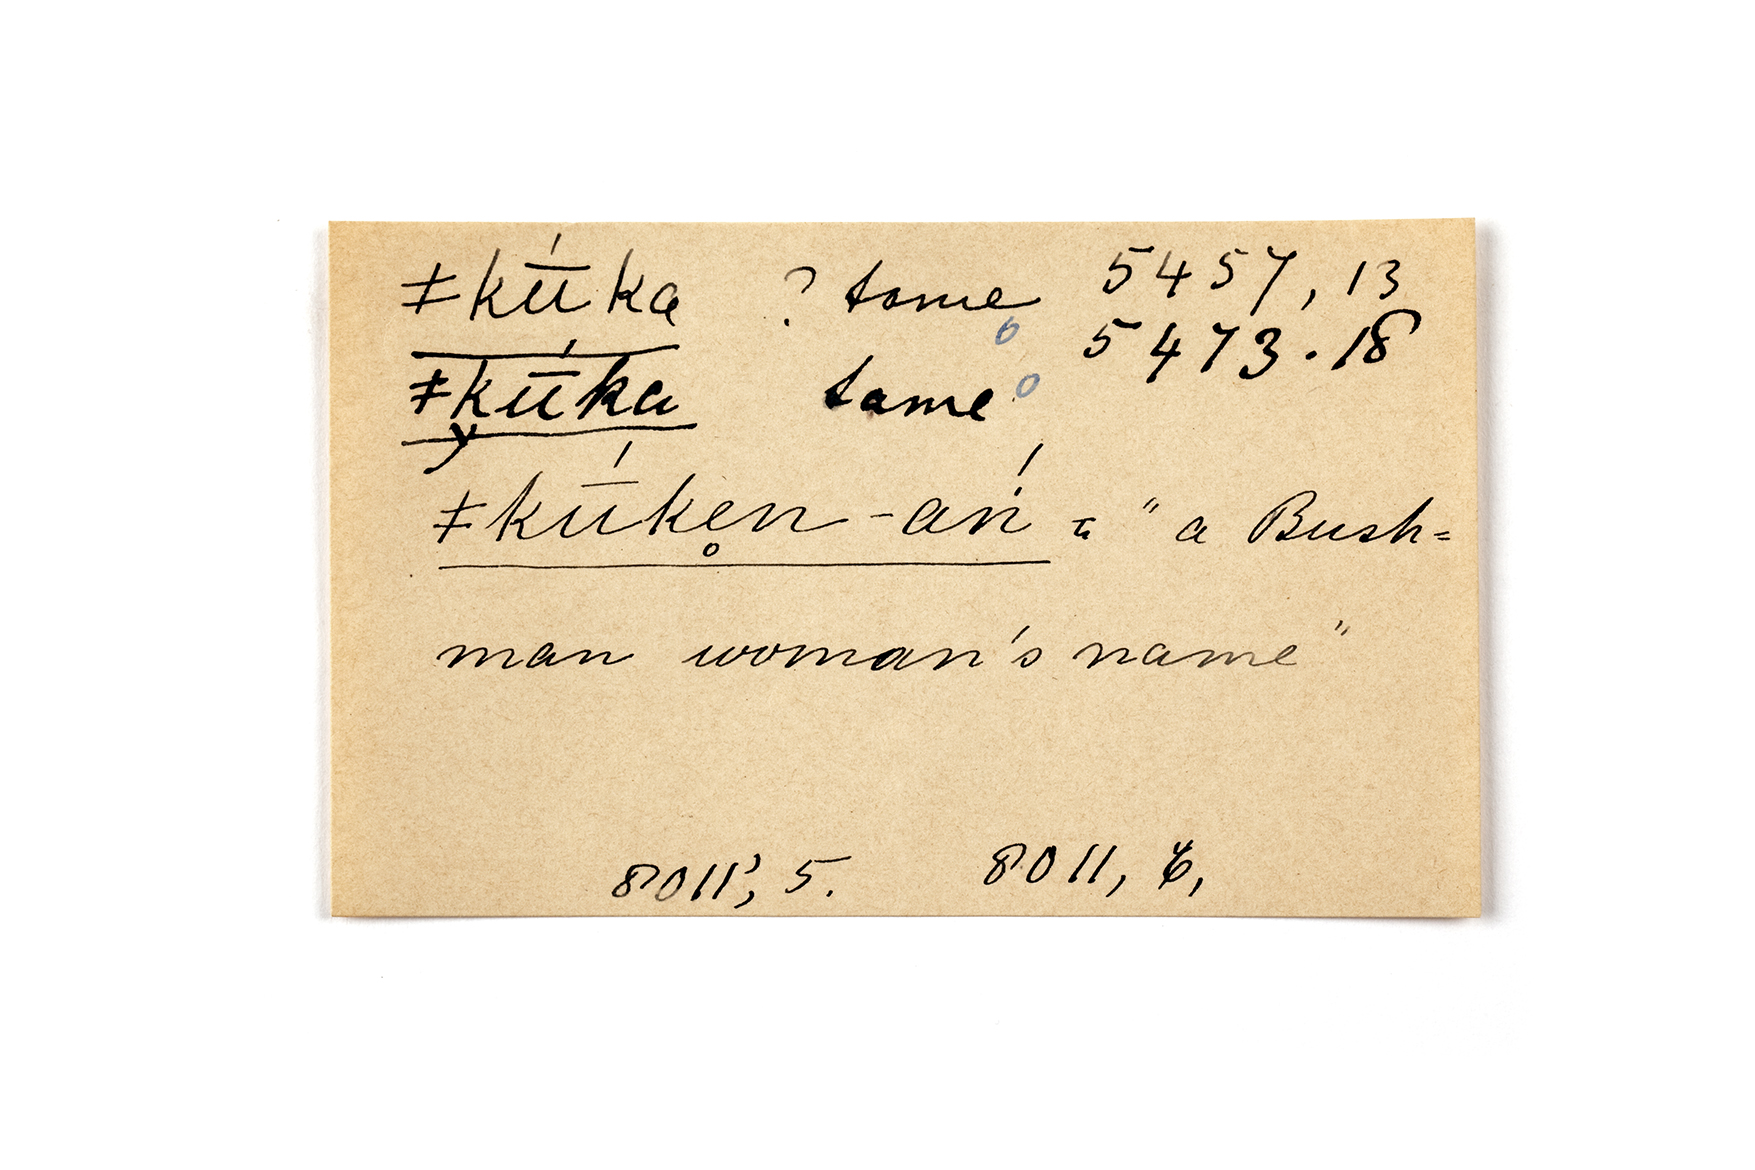 ǂkū́ka ? tame 5457, 13
ǂkū́ka tame 5473.18
ǂkū́ken̥-aṅ́ = "a Bush=
man woman's name"
8011', 5. 8011, 6,